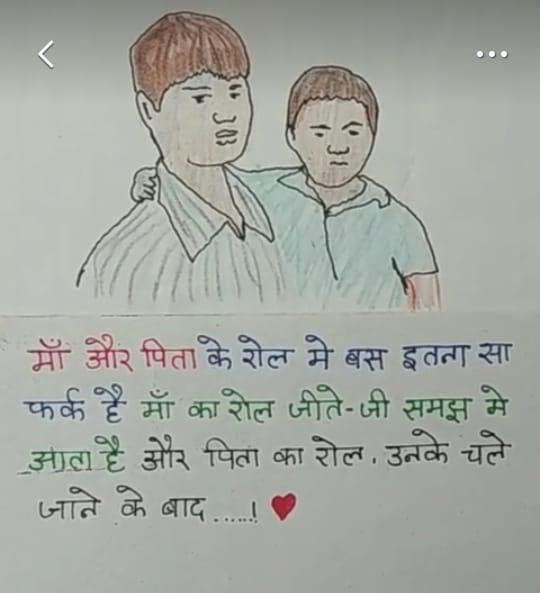 माँ और पिता के रोल मे बस इतना सा
फर्क है माँ का रोल जीते-जी समझ मे
आता है और पिता का रोल, उनके चले
जाने के बाद.....!